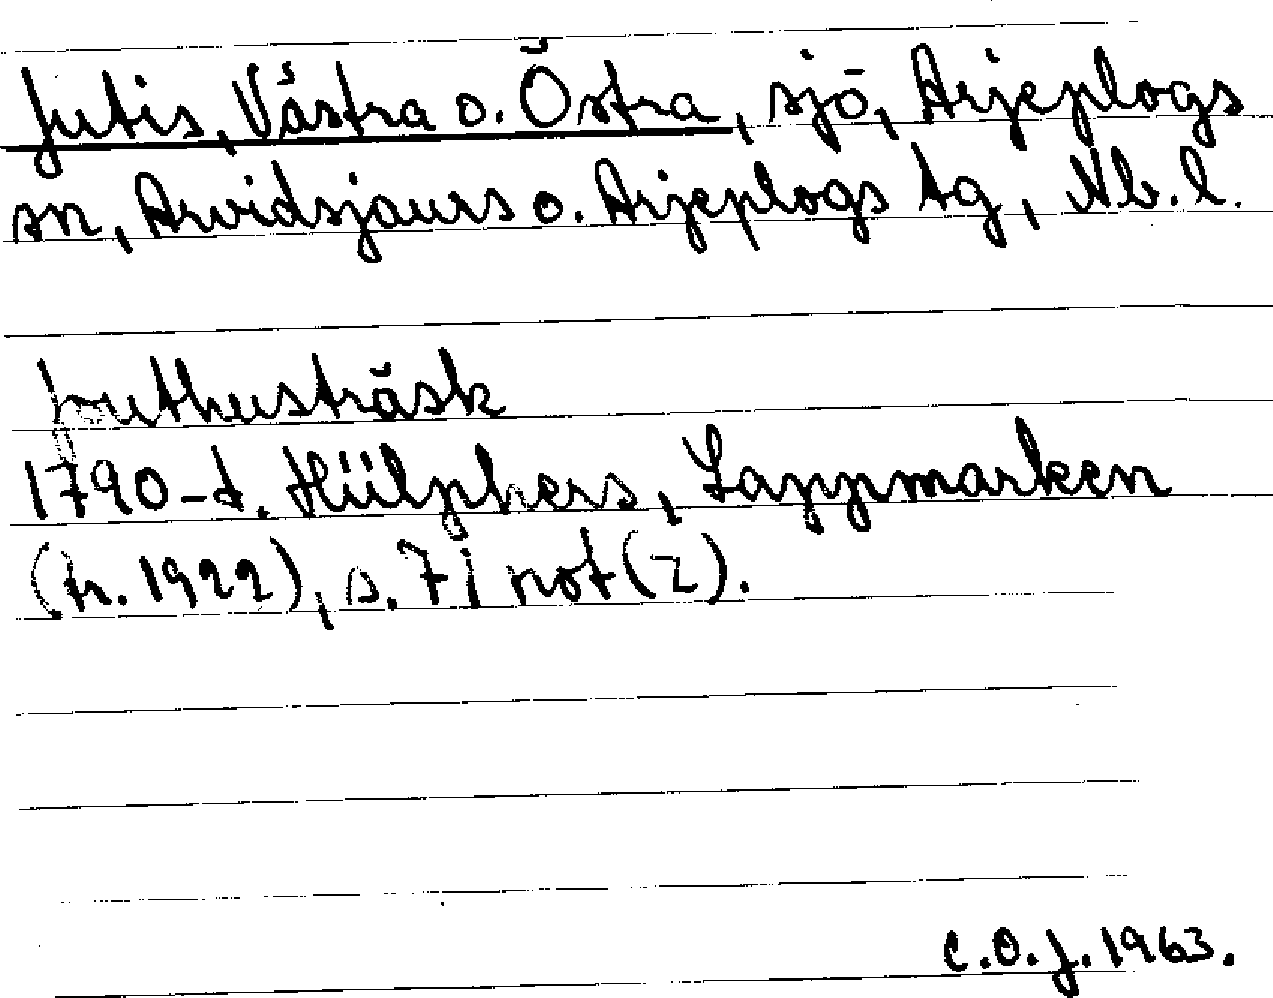 Jutis, Västra o. Östra, sjö, Arjeplogs
sn, Arvidsjaurs o. Arjeplogs tg, Nb. l.
Juthusträsk
1790-t. Hülphers, Lappmarken
(tr. 1922), s. 71 not (z).
C.O.J. 1963.